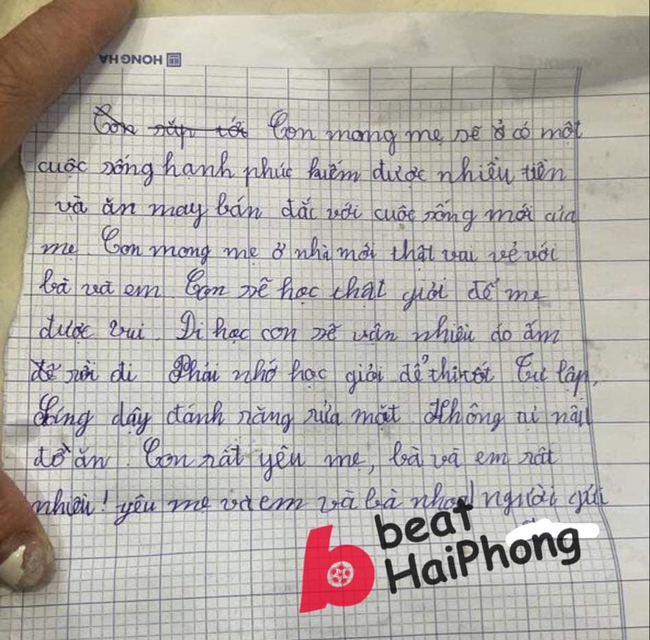 HONG HA
Con sắp tới Con mong mẹ sẽ ở có một
cuộc sống hanh phúc kiếm được nhiều tiền
và ăn may bán đắc với cuộc sống mới của
mẹ Con mong mẹ ở nhà mới thật vai vẻ với
bà và em Con sẽ học thật giỏi để mẹ
được vui Di học con sẽ vân nhiêu do ấm
để rồi đi Phải nhớ học giỏi để thi tốt Tự lập,
dáng dây đánh răng rửa mặt Không ai nấu
đồ ăn. Con rất yêu mẹ, bà và em rất
nhiều! yêu mẹ và em và bà người gửi
beat
HaiPhong